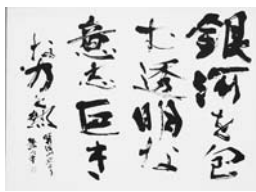 銀河を包
む透明な
意志巨き
な力と熱